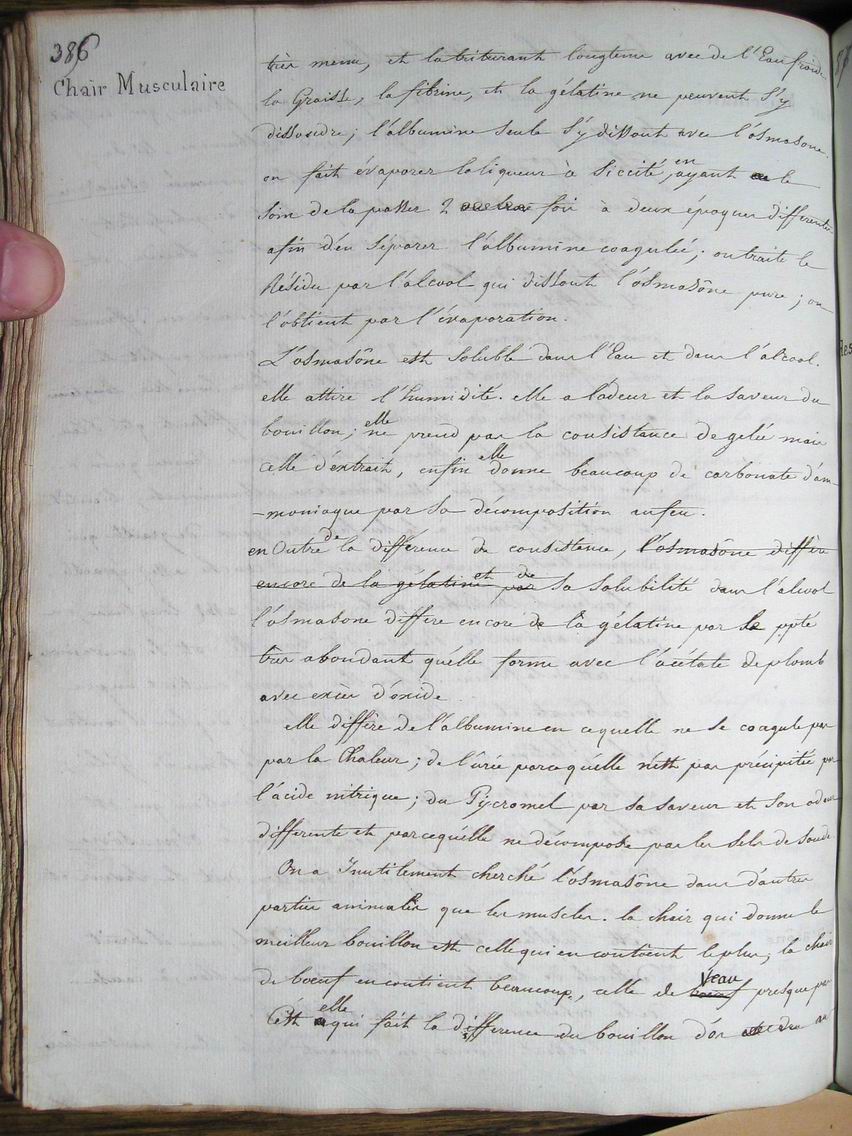 386
Chair Musculaire
très menu, et la triturant longtems avec de l'Eau froide
la Graisse, la fibrine, et la gélatine ne peuvent s'y
dissoudre; l'albumine seule s'y dissout avec l'ósmasone.
on fait évaporer la liqueur à siccité, en ayant le
soin de la passer 2 fois à deux époques differentes
afin d'en séparer l'albumine coagulée; on traite le
Résidu par l'alcool qui dissout l'ósmasône pure; on
l'obtient par l'évaporation.
L'osmasône est soluble dans l'Eau et dans l'alcool.
elle attire l'humidité. elle a l'odeur et la saveur du
bouillon; elle ne prend pas la consistance de gelée mais
celle d'éxtrait, enfin elle donne beaucoup de carbonate d'am-
-moniaque par sa décomposition au feu.
en Outre de la différence de consistance, l'osmasône diffère
encore de la gélatine et de sa solubilité dans l'alcool
l'ósmasone differe encore de la gélatine par le ppté
très abondant qu'elle forme avec l'acétate de plomb
avec excès d'oxide
elle diffère de l'albumine en ce qu'elle ne se coagule pas
par la Chaleur; de l'urée parce qu'elle n'est pas précipitée par
l'acide nitrique; du Pycromel par sa saveur et son odeur
differente et parce qu'elle ne décompose pas les sels de soude
On a Inutilement cherché l'osmasône dans d'autres
parties animales que les muscles. la chair qui donne le
meilleur bouillon est celle qui en contient le plus; la chair
de boeuf en contient beaucoup, celle de boeuf Veau presque pas
C'est elle qui fait la différence du bouillon d'os